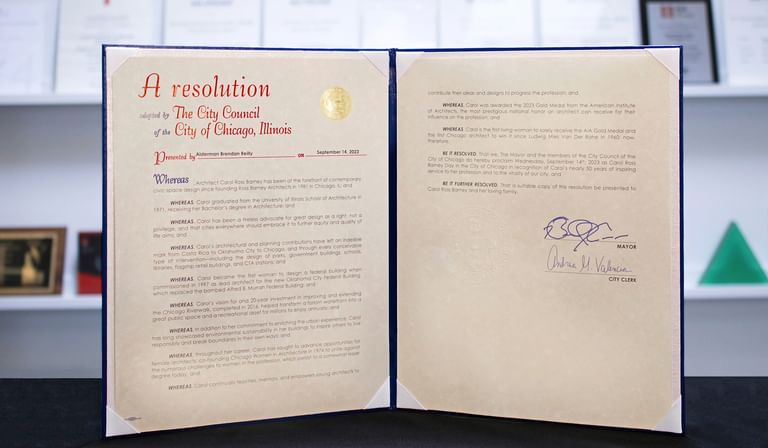 A resolution
adopted by The City Council
of the City of Chicago, Illinois
Presented by Alderman Brendan Reilly ON September 14, 2023
Whereas Architect Carol Ross Barney has been at the forefront of contemporary
civic space design since founding Ross Barney Architects in 1981 in Chicago, IL; and
WHEREAS, Carol graduated from the University of Illinois School of Architecture in
1971, receiving her Bachelor's degree in Architecture; and
WHEREAS, Carol has been a tireless advocate for great design as a right, not a
privilege, and that cities everywhere should embrace it to further equity and quality of
life aims; and
WHEREAS, Carol's architectural and planning contributions have left an indelible
mark from Costa Rica to Oklahoma City to Chicago, and through every conceivable
type of intervention—including the design of parks, government buildings, schools,
libraries, flagship retail buildings, and CTA stations; and
WHEREAS, Carol became the first woman to design a federal building when
commissioned in 1997 as lead architect for the new Oklahoma City Federal Building
which replaced the bombed Alfred B. Murrah Federal Building; and
WHEREAS, Carol's vision for and 20-year investment in improving and extending
the Chicago Riverwalk, completed in 2016, helped transform a forlorn waterfront into a
great public space and a recreational asset for millions to enjoy annually; and
WHEREAS, in addition to her commitment to enriching the urban experience, Carol
has long showcased environmental sustainability in her buildings to inspire others to live
responsibly and break boundaries in their own ways; and
WHEREAS, throughout her career, Carol has sought to advance opportunities for
female architects, co-founding Chicago Women in Architecture in 1974 to unite against
the numerous challenges to women in the profession, which persist to a somewhat lesser
degree today; and
WHEREAS, Carol continually teaches, mentors, and empowers young architects to
contribute their ideas and designs to progress the profession; and
WHEREAS, Carol was awarded the 2023 Gold Medal from the American Institute
of Architects, the most prestigious national honor an architect can receive for their
influence on the profession; and
WHEREAS, Carol is the first living woman to solely receive the AIA Gold Medal and
the first Chicago architect to win it since Ludwig Mies Van Der Rohe in 1960; now,
therefore,
BE IT RESOLVED, That we, The Mayor and the members of the City Council of the
City of Chicago do hereby proclaim Wednesday, September 14th, 2023 as Carol Ross
Barney Day in the City of Chicago in recognition of Carol's nearly 50 years of inspiring
service to her profession and to the vitality of our city; and
BE IT FURTHER RESOLVED, That a suitable copy of this resolution be presented to
Carol Ross Barney and her loving family.
MAYOR
Andrea M. Valencia
CITY CLERK